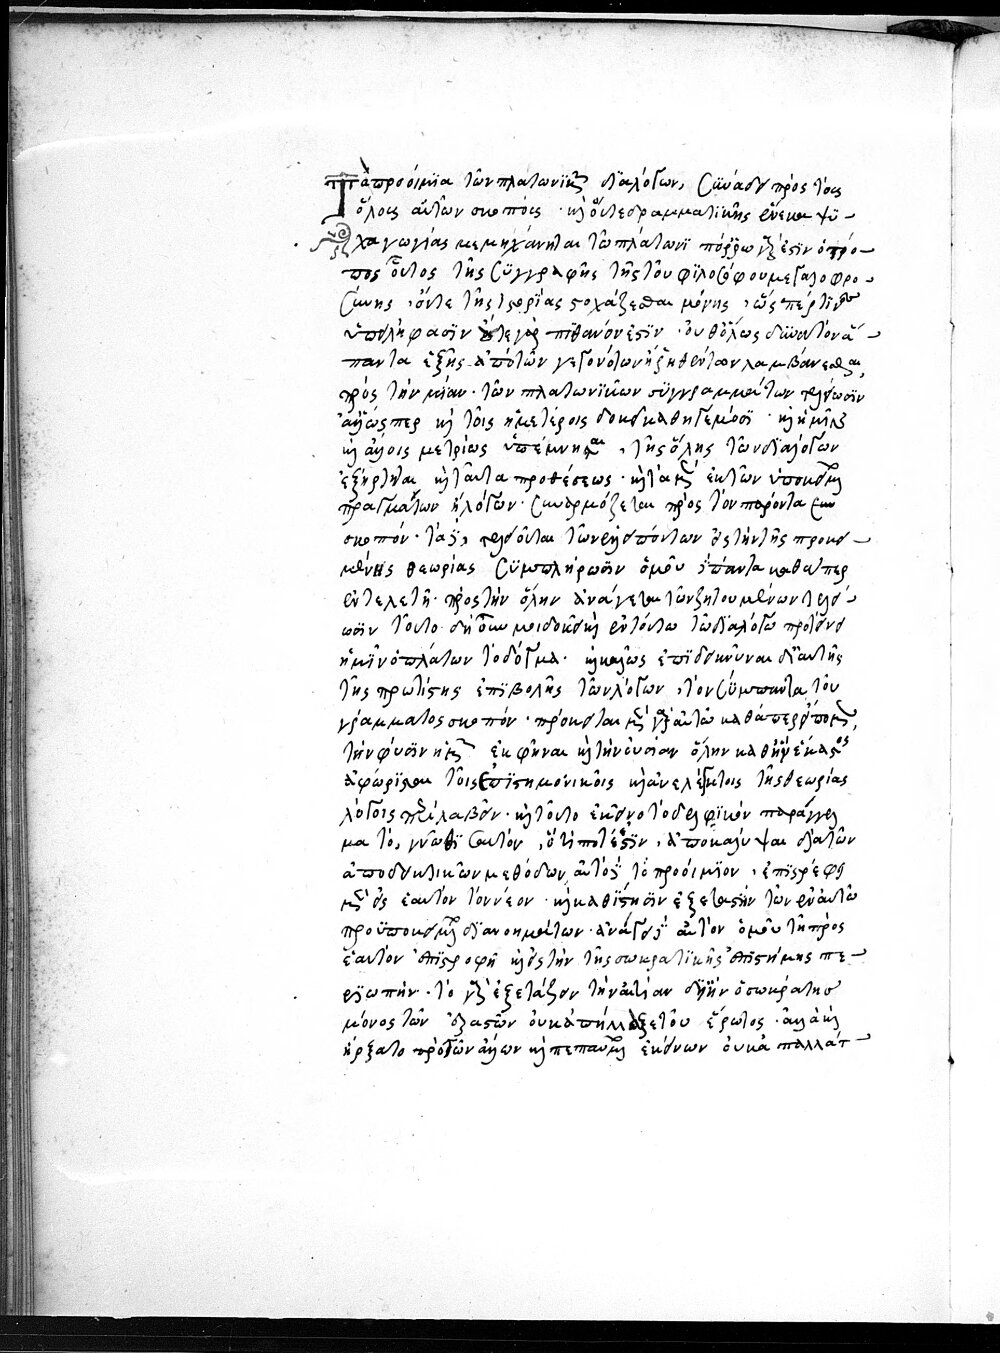 Τὰ προοίμϊα τῶν πλατωνϊκῶν διαλόγων, συνάδει πρὸς τοὺς
ὅλους αὐτῶν σκοποὺς · καὶ οὔτε δραμματικῆς ἕνεκα ψυ-
χαγωγίας μεμηχάνηται τῶ πλάτωνϊ πόρρω γάρ ἐστιν ὁ τρό-
πος οὗτος τῆς συγγραφῆς τῆς τοῦ φϊλοσόφου μεγαλοφρο-
σύνης, οὔτε τῆς ἱστορίας στοχάζεται μόνης, ὥσπερ τινὲς
ὑπειλήφασϊν οὔτε γὰρ πιθανόν ἐστϊν · ουθ ὅλως δυνατὸν ἅ-
παντα ἑξῆς ἀπὸ τῶν γεγονότων ἢ ῥηθέντων λαμβάνεσθαι,
πρὸς τὴν μίαν · τῶν πλατωνϊκῶν συγγραμμάτων τελείωσϊν
ἀλλ' ὥσπερ καὶ τοῖς ἡμετέροις δοκεῖ καθηγεμόσϊ · καὶ ἡμῖν
καὶ ἄλλοις μετρίως ὑπέμνησται, τῆς ὅλης τῶν διαλόγων
ἐξήρτηται καὶ ταῦτα προθέσεως · καὶ τὰ μὲν ἐκ τῶν ὑποκειμένων
πραγμάτων ἢ λόγων · συναρμόζεται πρὸς τὸν παρόντα
σκοπόν · τὰ δὲ, τελειοῦται τῶν ἐλλειπόντων εἰς τὴν τῆς προκει-
μένης θεωρίας συμπλήρωσϊν ὁμοῦ δὲ πάντα καθάπερ
ἐν τελετῆ · πρὸς τὴν ὅλην ἀνάγεται τῶν ζητουμένων τελεί-
ωσϊν τοῦτο · δὴ οὖν μοι δοκεῖ καὶ ἐν τούτω τῶ διαλόγω προτείνειν
ἡμῖν ὁ πλάτων τὸ δόγμα · καὶ καλῶς ἐπϊδεικνῦναι δϊ αὐτῆς
τῆς πρωτίστης ἐπϊβολῆς τῶν λόγων, τὸν σύμπαντα τοῦ
γράμματος σκοπόν · πρόκειται μὲν γὰρ αὐτῶ καθάπερ εἴπομεν,
τὴν φύσϊν ἡμῶν ἐκφῆναι καὶ τὴν οὐσίαν ὅλην καθ ἣν ἕκαστος
ἀφώρϊσται τοῖς ἐπϊστημονικοῖς καὶ ἀνελέγκτοις τῆς θεωρίας
λόγοις περϊλαβεῖν · καὶ τοῦτο ἐκεῖνο τὸ δελφϊκὸν παράγγελ
μα τὸ, γνῶθϊ σαυτόν, ὅ τί ποτέ ἐστϊν, ἀποκαλύψαι διὰ τῶν
ἀποδεικτικῶν μεθόδων, αὐτὸ δὲ τὸ προοίμϊον, ἐπϊστρέφει
μὲν εἰς ἑαυτὸν τὸν νέον · καὶ καθίστησϊν ἐξεταστὴν τῶν ἐν αὐτῶ
προϋποκειμένων δϊανοημάτων · ἀνάγει δὲ αὐτὸν ὁμοῦ τῆ πρὸς
ἑαυτὸν ἐπϊστροφῆ καὶ εἰς τὴν τῆς σωκρατϊκῆς ἐπϊστήμης πε-
ρϊωπήν · τὸ γὰρ ἐξετάζειν τὴν αἰτίαν δι ἣν ὁ σωκράτης
μόνος τῶν ἐραστῶν οὐκ ἀπήλλακται τοῦ ἔρωτος · ἀλλὰ καὶ
ἤρξατο πρὸ τῶν ἄλλων καὶ πεπαυμένων ἐκείνων οὐκ ἀπαλλάτ-